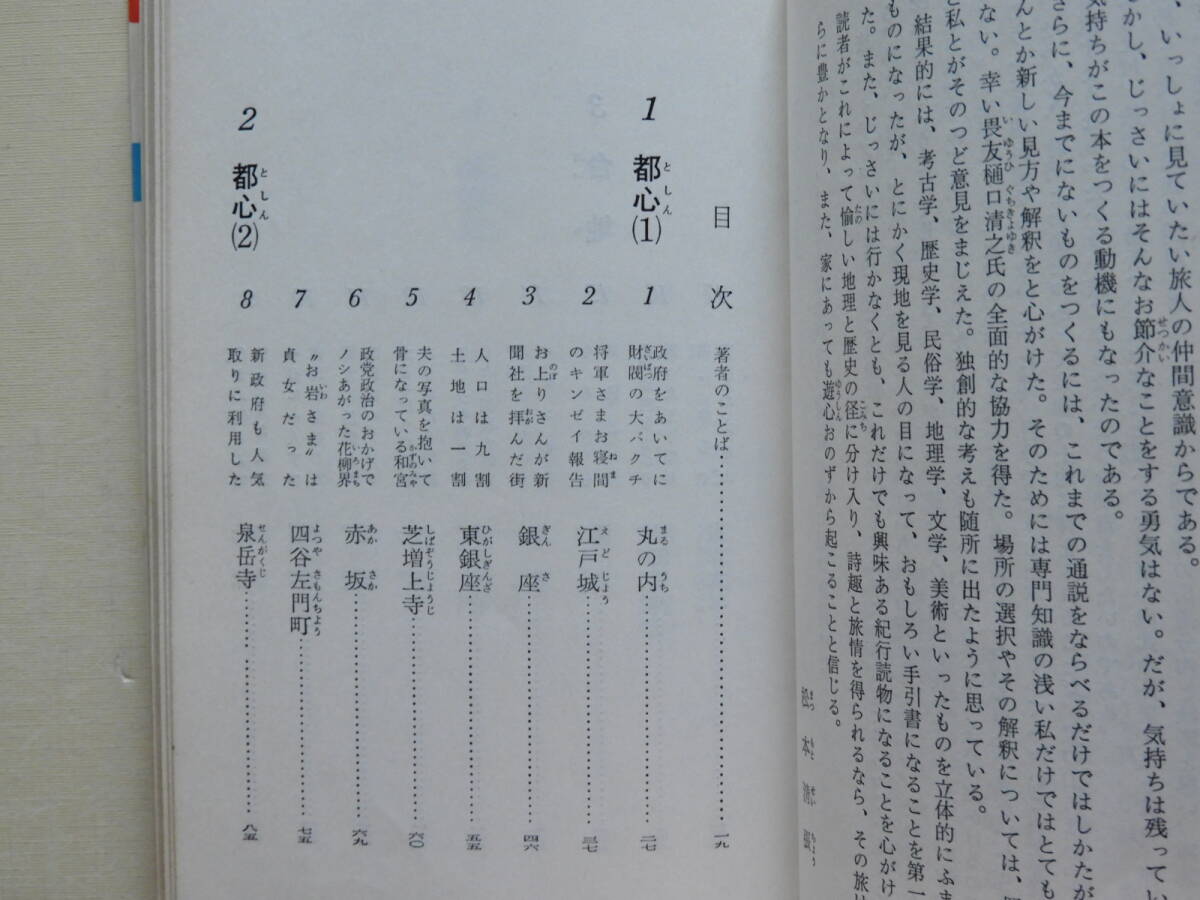 、いっしょに見ていたい旅人の仲間意識からである。
かし、じっさいにはそんなお節介なことをする勇気はない。だが、気持ちは残ってい
気持ちがこの本をつくる動機にもなったのである。
さらに、今までにないものをつくるには、これまでの通説をならべるだけではしかたが
んとか新しい見方や解釈をと心がけた。そのためには専門知識の浅い私だけではとても
ない。幸い畏友樋口清之氏の全面的な協力を得た。場所の選択やその解釈については、
と私とがそのつど意見をまじえた。独創的な考えも随所に出たように思っている。
結果的には、考古学、歴史学、民俗学、地理学、文学、美術といったものを立体的にふま
ものになったが、とにかく現地を見る人の目になって、おもしろい手引書になることを第一
た。また、じっさいには行かなくとも、これだけでも興味ある紀行読物になることを心がけ
読者がこれによって愉しい地理と歴史の径に分け入り、詩趣と旅情を得られるなら、その旅
らに豊かとなり、また、家にあっても遊心おのずから起こることと信じる。
松本清張
目次
著者のことば 一九
1 都心(1)
1 政府をあいてに財閥の大バクチ 丸の内 二七
2 将軍さまお寝間のキンゼイ報告 江戸城 三七
3 お上りさんが新聞社を拝んだ街 銀座 四六
4 人口は九割土地は一割 東銀座 五五
5 夫の写真を抱いて骨になっている和宮 芝増上寺 六〇
6 政党政治のおかげでノシあがった花柳界 赤坂 六九
7 〝お岩さま〟は貞女だった 四谷左門町 七五
2 都心(2)
8 新政府も人気取りに利用した 泉岳寺 八五